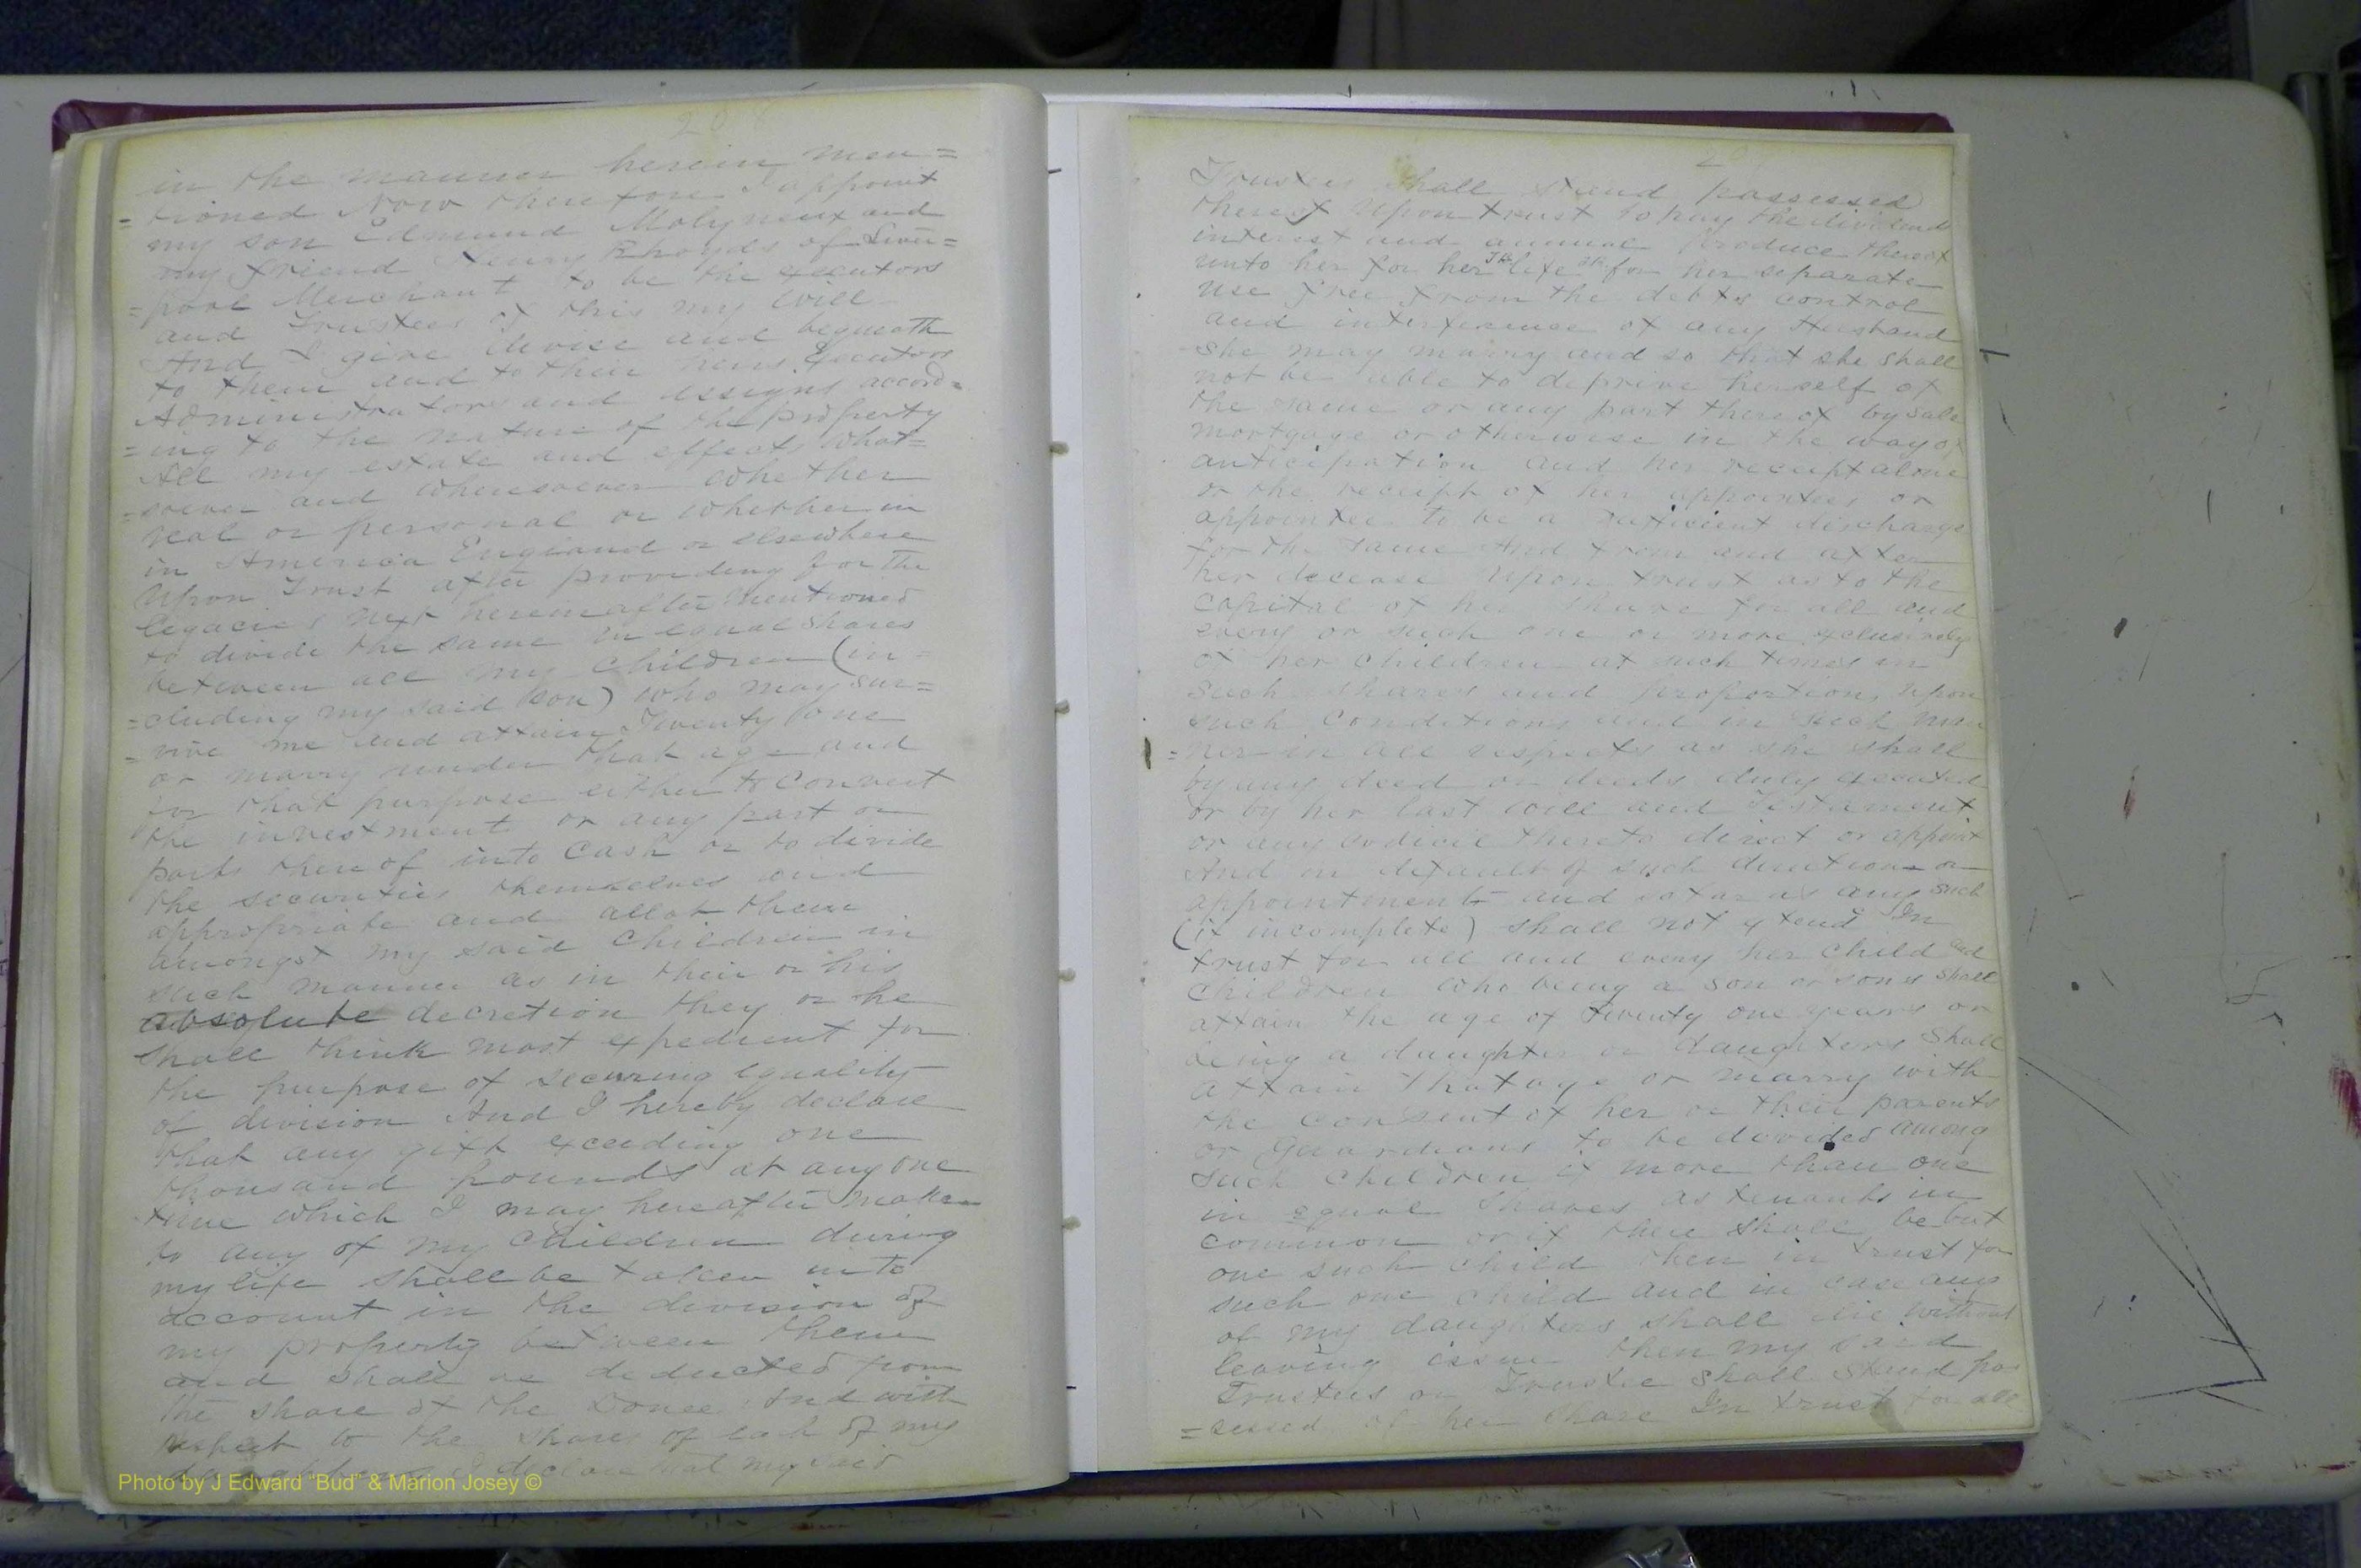 208
in the manner herein men=
=tioned Now therefore I appoint
my son Edmund Molyneux and
my friend Henry Rhoyds of Liver=
=pool Merchant to be the executors
and Trustees of this my Will
And I give devise and bequeath
to them and to their heirs Executors
Administrators and assigns accord=
=ing to the nature of the property
All my estate and effects what=
=soever and wheresoever whether
real or personal or whether in
in America England or elsewhere
Upon Trust after providing for the
legacies next hereinafter mentioned
to divide the same in equal shares
between all my children (in=
=cluding my said son) who may sur=
=vive me and attain Twenty one
or marry under that age and
for that purpose either to convert
the investment or any part or
parts thereof into Cash or to divide
the securities themselves and
appropriate and allot them
amongst my said Children in
such manner as in their or his
absolute decretion they or he
shall think most expedient for
the purpose of securing equality
of division And I hereby declare
that any gift exceeding one
thousand pounds at any one
time which I may hereafter make
to any of my Children during
my life shall be taken into
account in the division of
my property between them
and shall be deducted from
the share of the Donee And with
respect to the shares of each of my
declare that my said
Trustees shall stand possessed
thereof Upon trust to pay the dividends
interest and annual produce thereof
unto her for her life for her separate
use free from the debts control
and interference of any Husband
she may marry and so that she shall
not be able to deprive herself of
the same or any part thereof by sale
mortgage or otherwise in the way of
anticipation and her receipt alone
or the receipt of her appointees or
appointee to be a sufficient discharge
for the same And from and after
her decease Upon trust as to the
capital of her share for all and
every or such one or more exclusively
of her children at such times in
such shares and proportions upon
such conditions and in such man
=ner in all respects as she shall
by any deed or deeds duly executed
or by her last Will and Testament
or any codicil thereto direct or appoint
And in default of such direction or
appointment and so far as any such
(if incomplete) shall not extend In
trust for all and every her child and
children who being a son or sons shall
attain the age of twenty one years or
being a daughter or daughters shall
attain that age or marry with
the consent of her or their parents
or Guardians to be divided among
such children if more than one
in equal shares as tenants in
common or if there shall be but
one such child then in trust for
such one child and in case any
of my daughters shall die without
leaving issue then my said
Trustees or Trustee shall stand pos
=sessed of her share In trust for all
Photo by J Edward "Bud" & Marion Josey ©